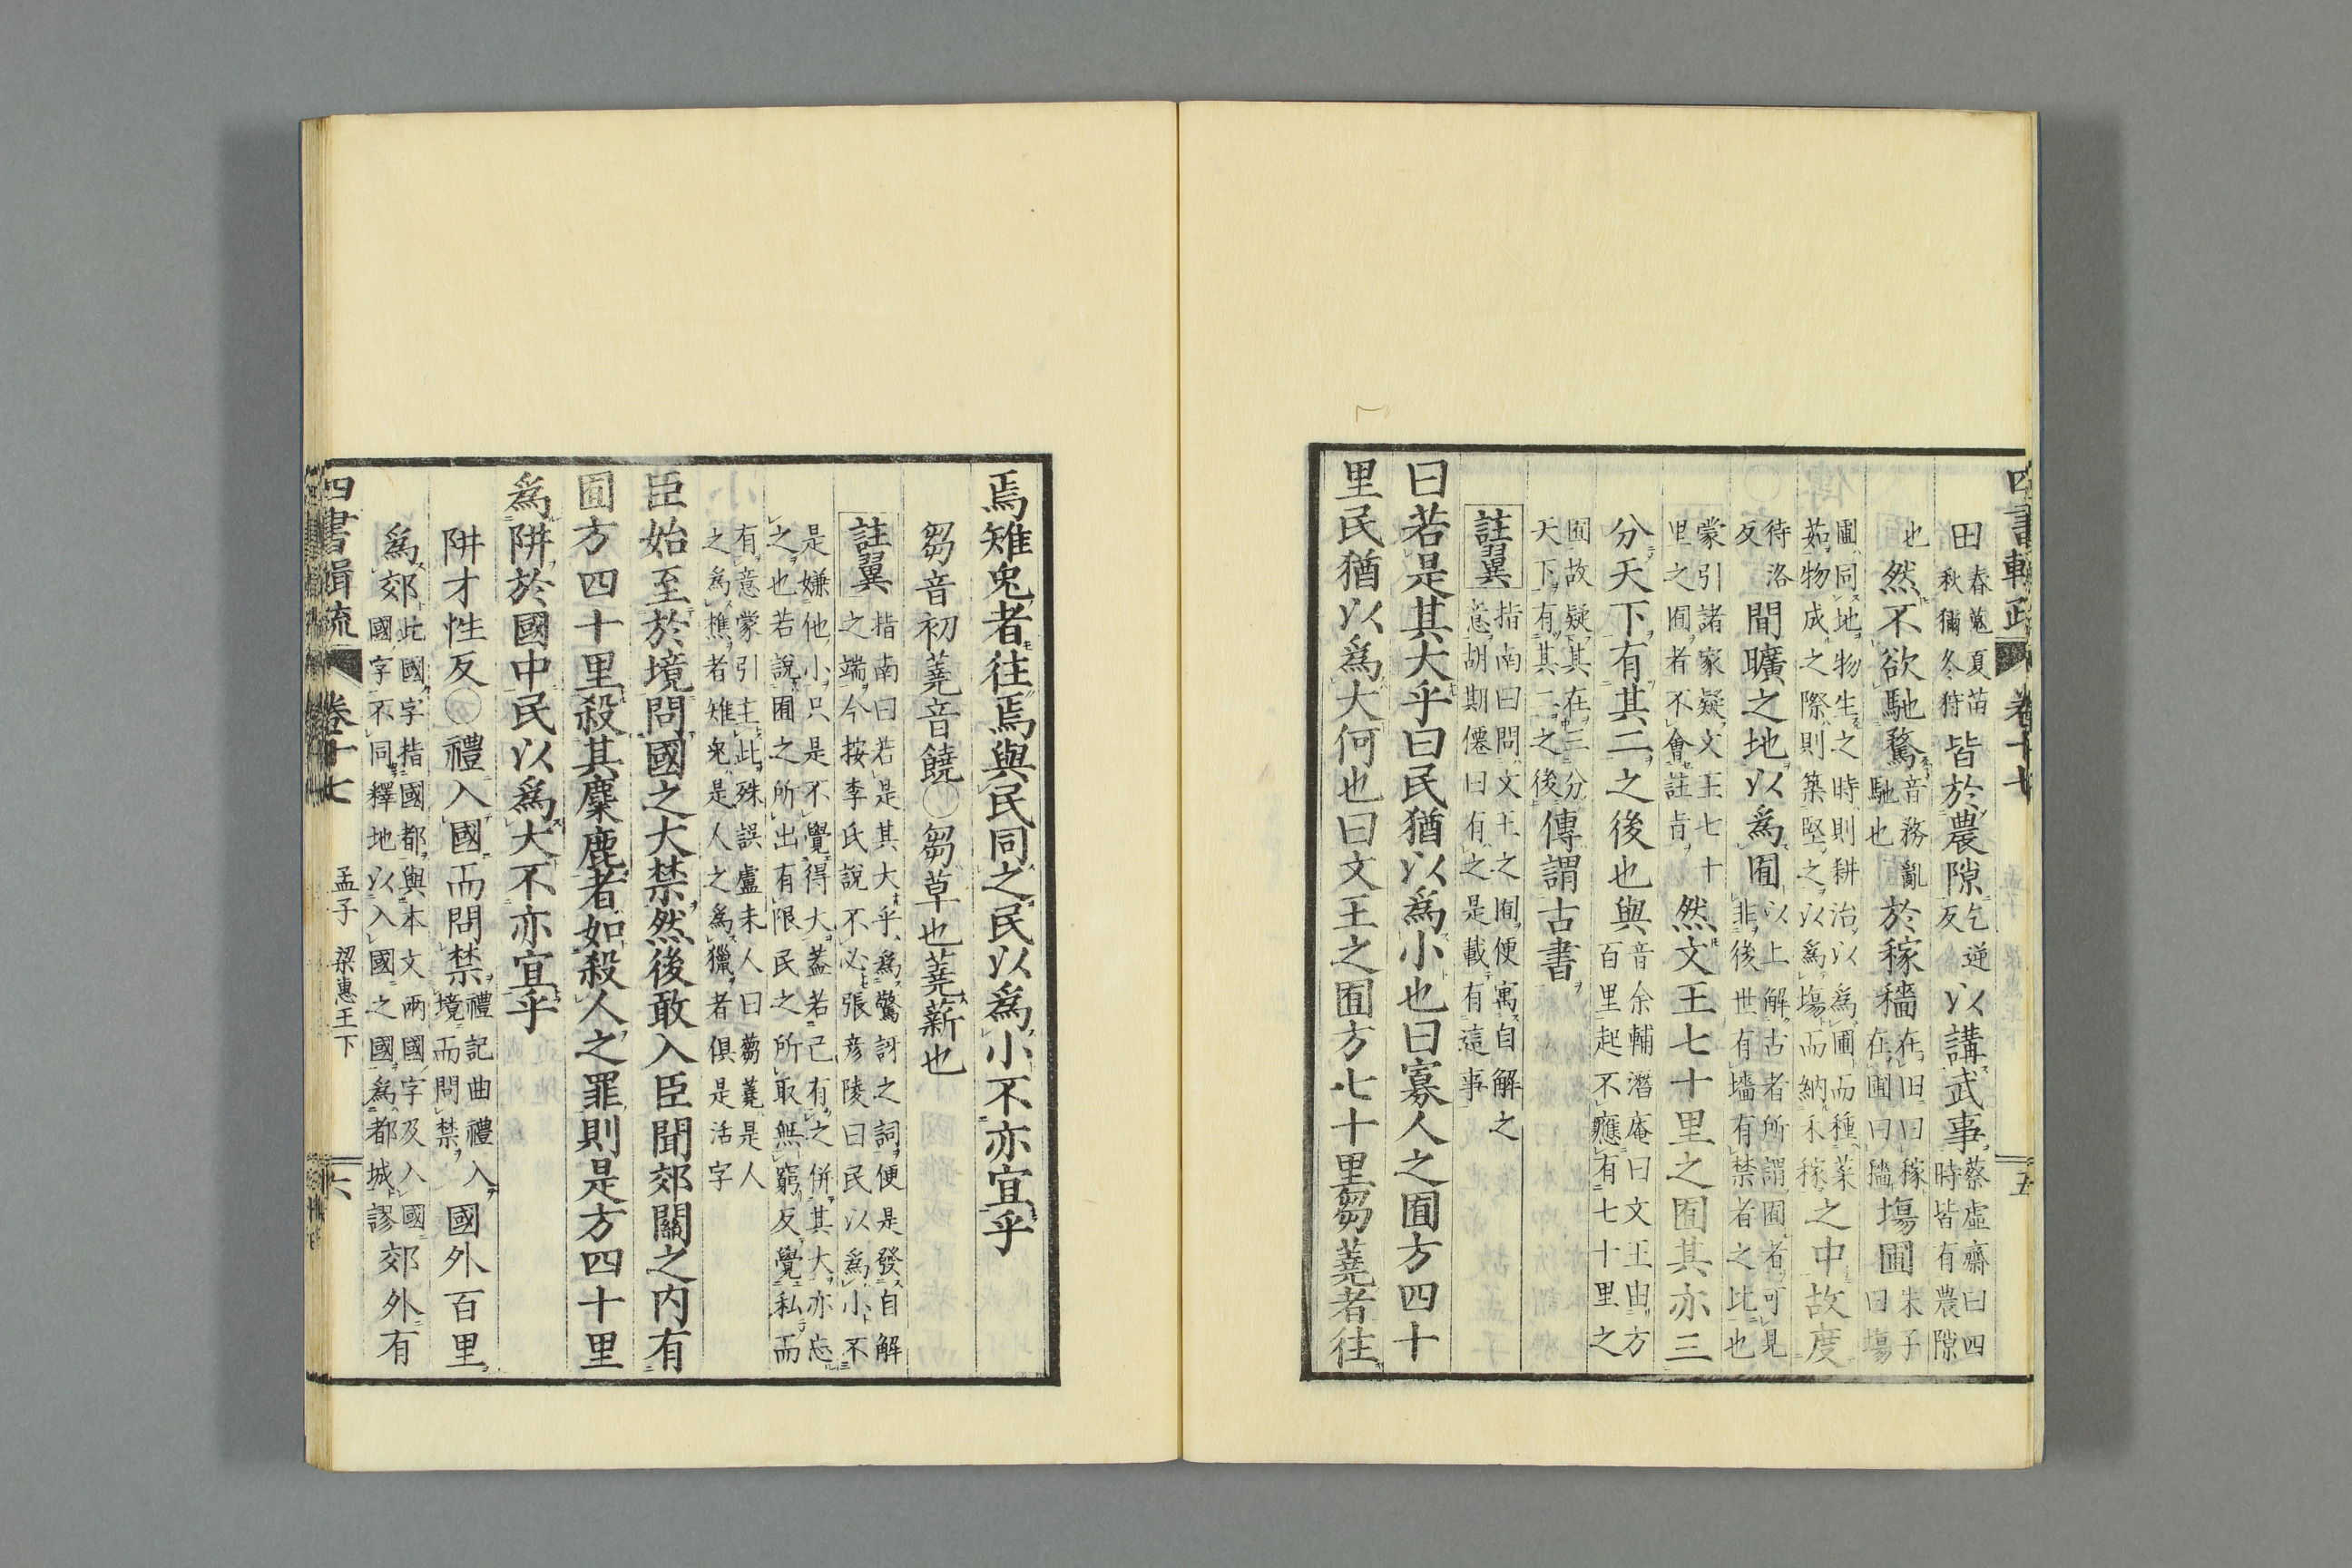 四書輯疏 卷十七 五
田春蒐夏苗秋獮冬狩皆於農隙乞逆反以講武事蔡虛齋曰四時皆有農隙
也然不欲馳騖音務亂馳也於稼穡在田曰稼在圃曰穡場圃朱子曰場
圃同地物生之時則耕治以爲圃而種菜茹物成之際則築堅之以爲場而納禾稼之中故度
待洛反閒曠之地以爲囿以上解古者所謂囿者可見非後世有墻有禁者之比也
蒙引諸家疑文王七十里之囿者不會註旨然文王七十里之囿其亦三
分天下有其二之後也與音余輔潛庵曰文王由方百里起不應有七十里之
囿故疑其在三分天下有其二之後傳謂古書
註翼指南曰問文王之囿便寓自解之意胡期僊曰有之是載有這事
曰若是其大乎曰民猶以爲小也曰寡人之囿方四十
里民猶以爲大何也曰文王之囿方七十里芻蕘者往
焉雉兔者往焉與民同之民以爲小不亦宜乎
芻音初蕘音饒○芻草也蕘薪也
註翼指南曰若是其大乎爲驚訝之詞便是發自解之端今按李氏說不必張彥陵曰民以爲小不
是嫌他小只是不覺得大蓋若己有之併其大亦忘之也若說囿之所出有限民之所取無窮反覺私而
有意蒙引主此殊誤盧未人曰芻蕘是人之爲樵者雉兔是人之爲獵者俱是活字
臣始至於境問國之大禁然後敢入臣聞郊關之內有
囿方四十里殺其麋鹿者如殺人之罪則是方四十里
爲阱於國中民以爲大不亦宜乎
阱才性反○禮入國而問禁禮記曲禮入境而問禁國外百里
爲郊此國字指國都與本文兩國字及入國國字不同釋地以入國之國爲都城謬郊外有
四書輯疏 卷十七 孟子 梁惠王下 六